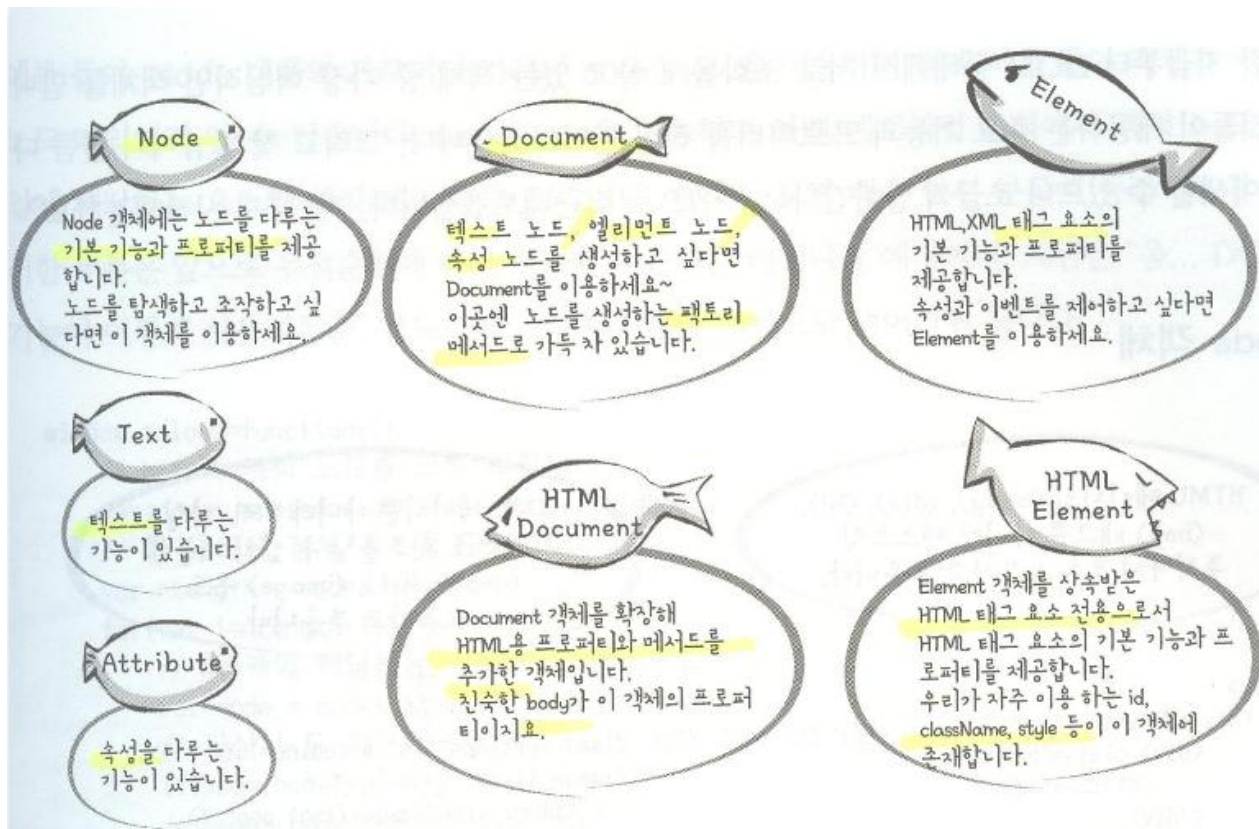 Node
Node 객체에는 노드를 다루는
기본 기능과 프로퍼티를 제공
합니다.
노드를 탐색하고 조작하고 싶
다면 이 객체를 이용하세요.
Document
텍스트 노드, 엘리먼트 노드,
속성 노드를 생성하고 싶다면
Document를 이용하세요~
이곳엔 노드를 생성하는 팩토리
메서드로 가득 차 있습니다.
Element
HTML,XML 태그 요소의
기본 기능과 프로퍼티를
제공합니다.
속성과 이벤트를 제어하고 싶다면
Element를 이용하세요.
Text
텍스트를 다루는
기능이 있습니다.
Attribute
속성을 다루는
기능이 있습니다.
HTML
Document
Document 객체를 확장해
HTML용 프로퍼티와 메서드를
추가한 객체입니다.
친숙한 body가 이 객체의 프로퍼
티이지요.
HTML
Element
Element 객체를 상속받은
HTML 태그 요소 전용으로서
HTML 태그 요소의 기본 기능과 프
로퍼티를 제공합니다.
우리가 자주 이용 하는 id,
className, style 등이 이 객체에
존재합니다.